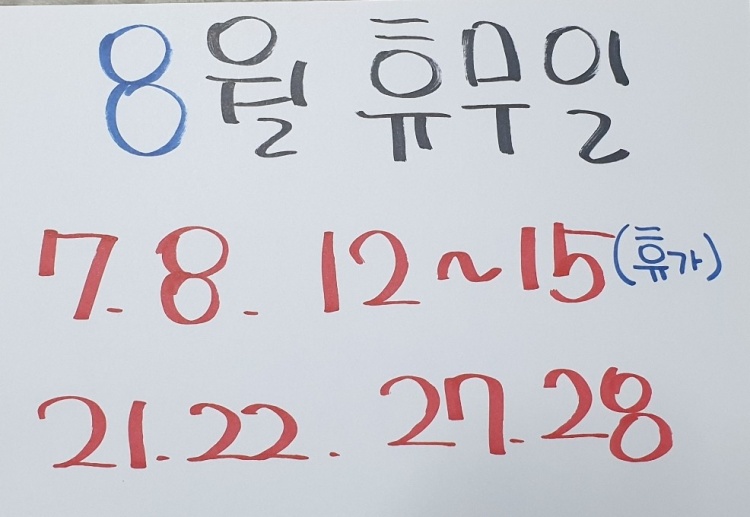 8월 휴무일
7. 8. 12~15(휴가)
21. 22. 27. 28